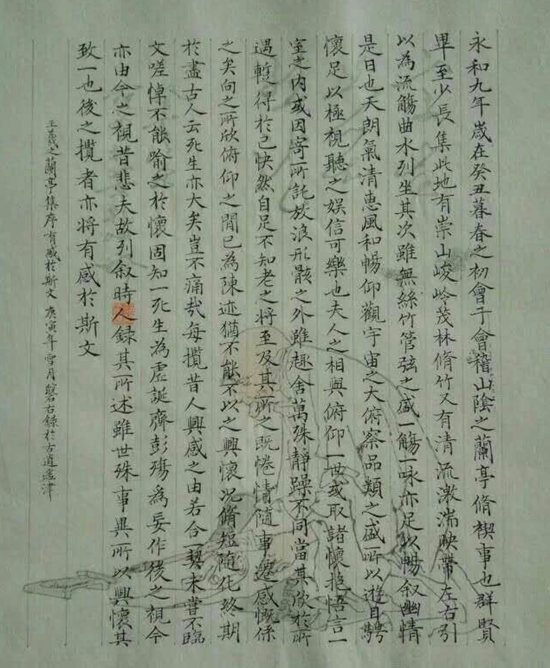 永和九年歲在癸丑暮春之初會于會稽山陰之蘭亭脩禊事也群賢
畢至少長集此地有崇山峻岭茂林脩竹又有清流激湍映帶左右引
以為流觴曲水列坐其次雖無絲竹管弦之盛一觴一咏亦足以暢叙幽情
是日也天朗氣清惠風和暢仰觀宇宙之大俯察品類之盛所以遊目騁
懷足以極視聽之娱信可樂也夫人之相與俯仰一世或取諸懷抱悟言一
室之内或因寄所託放浪形骸之外雖趣舍萬殊靜躁不同當其欣於所
遇暫得於己快然自足不知老之將至及其所之既惓情隨事遷感慨係
之矣向之所欣俯仰之間已為陳迹猶不能不以之興懷況脩短隨化終期
於盡古人云死生亦大矣豈不痛哉每攬昔人興感之由若合一契未嘗不臨
文嗟悼不能喻之於懷固知一死生為虛誕齊彭殤為妄作後之視今
亦由今之視昔悲夫故列叙時人録其所述雖世殊事異所以興懷其
致一也後之攬者亦將有感於斯文
王羲之蘭亭集序有感於斯文 庚寅年雪月磐古錄於古逍遙津